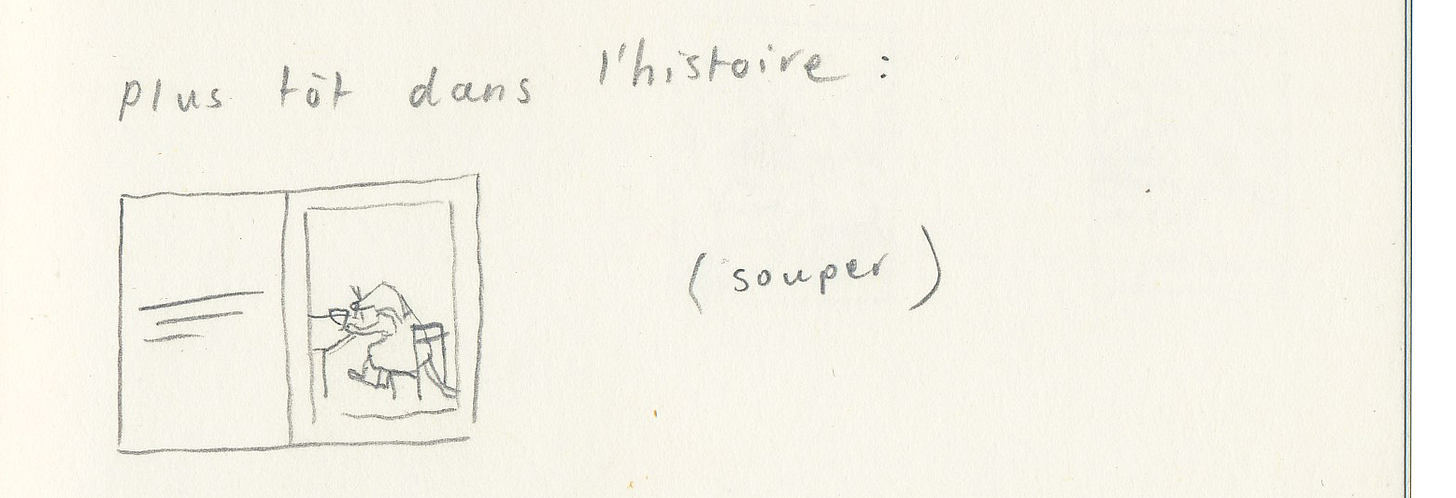 plus tôt dans l'histoire :
(souper)